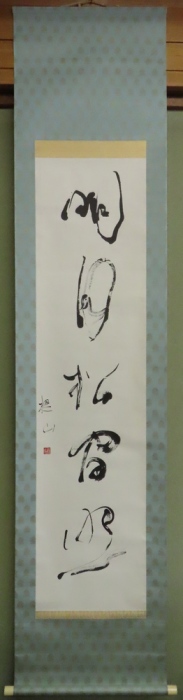 明月松間照